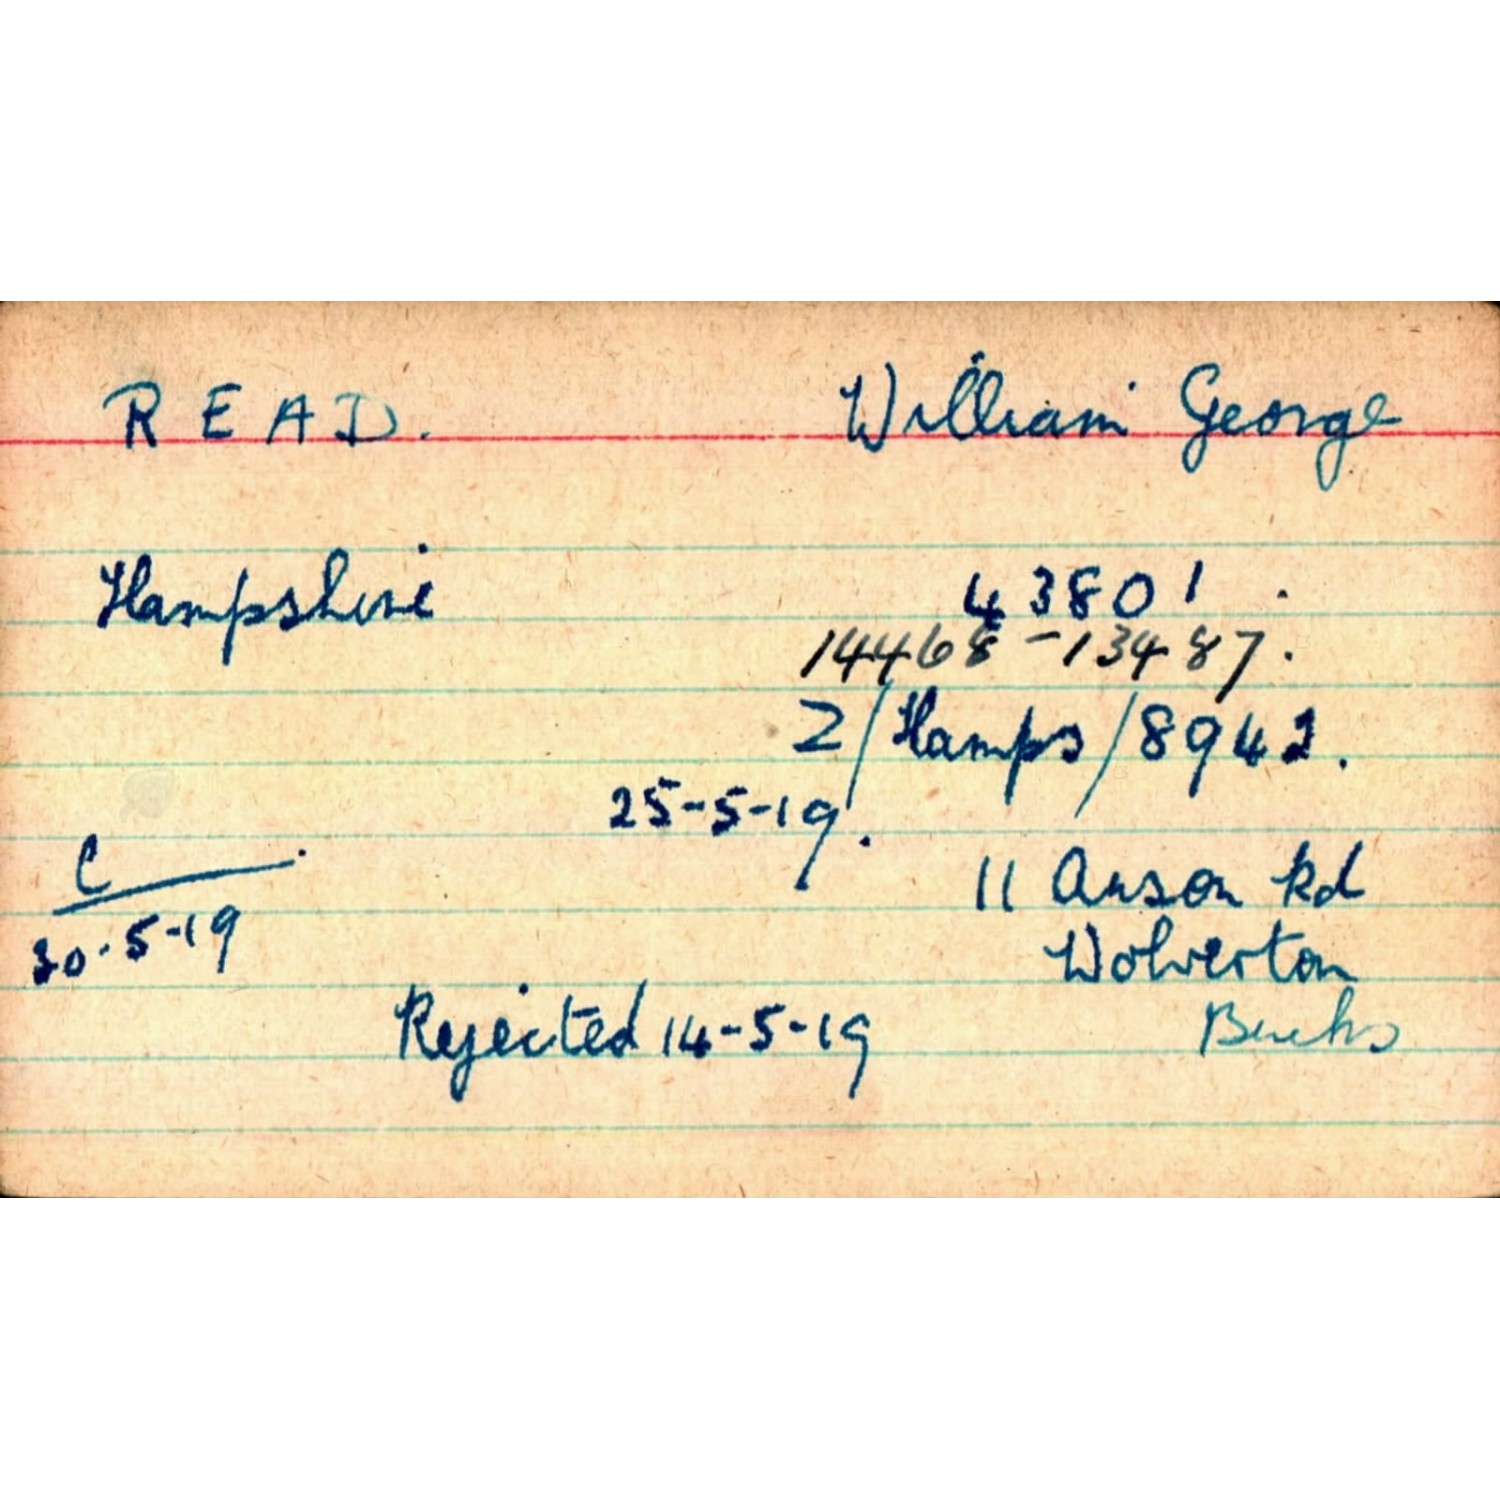 READ. William George
Hampshire 43801.
14468-13487.
2/Hamps/8942.
25-5-19.
C
11 Anson Rd
30.5-19
Wolverton
Rejected 14-5-19
Bucks